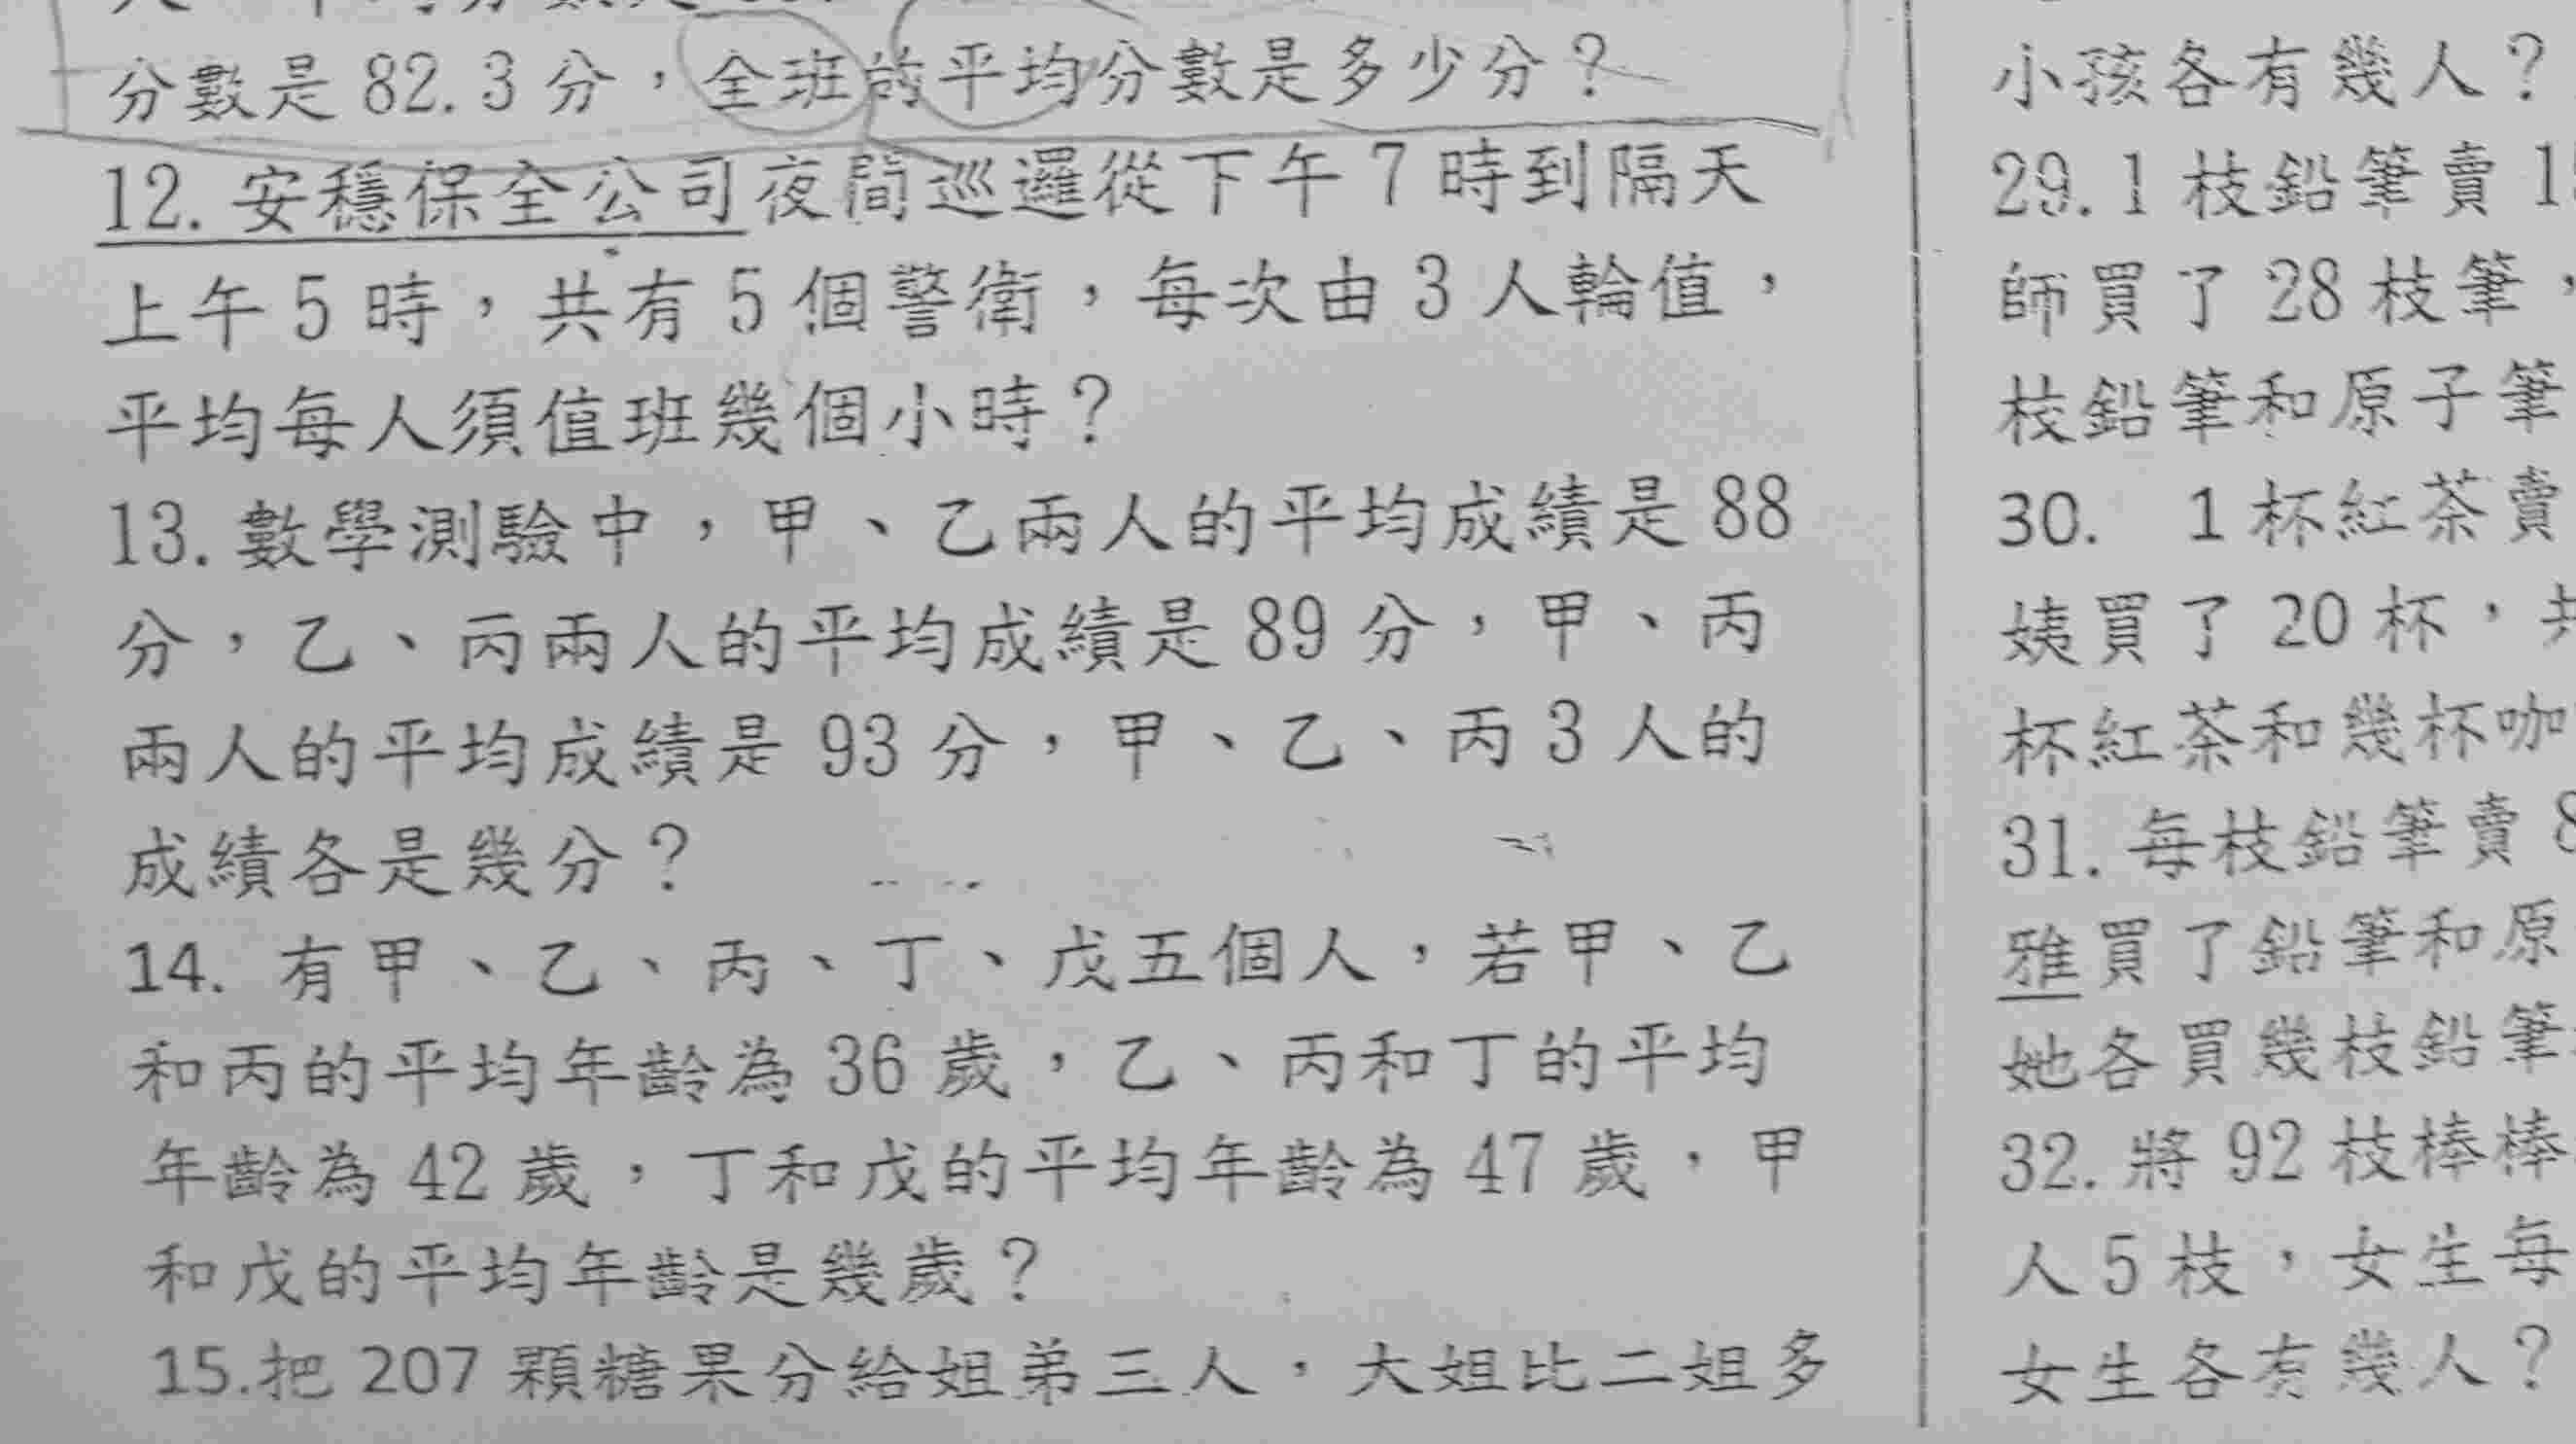 分數是 82.3 分，全班的平均分數是多少分？
12. 安穩保全公司夜間巡邏從下午 7 時到隔天
上午 5 時，共有 5 個警衛，每次由 3 人輪值，
平均每人須值班幾個小時？
13. 數學測驗中，甲、乙兩人的平均成績是 88
分，乙、丙兩人的平均成績是 89 分，甲、丙
兩人的平均成績是 93 分，甲、乙、丙 3 人的
成績各是幾分？
14. 有甲、乙、丙、丁、戊五個人，若甲、乙
和丙的平均年齡為 36 歲，乙、丙和丁的平均
年齡為 42 歲，丁和戊的平均年齡為 47 歲，甲
和戊的平均年齡是幾歲？
15.把 207 顆糖果分給姐弟三人，大姐比二姐多
小孩各有幾人？
29. 1 枝鉛筆賣
師買了 28 枝筆，
枝鉛筆和原子筆
30. 1 杯紅茶賣
姨買了 20 杯，
杯紅茶和幾杯咖
31. 每枝鉛筆賣
雅買了鉛筆和原
她各買幾枝鉛筆
32. 將 92 枝棒棒
人 5 枝，女生每
女生各有幾人？